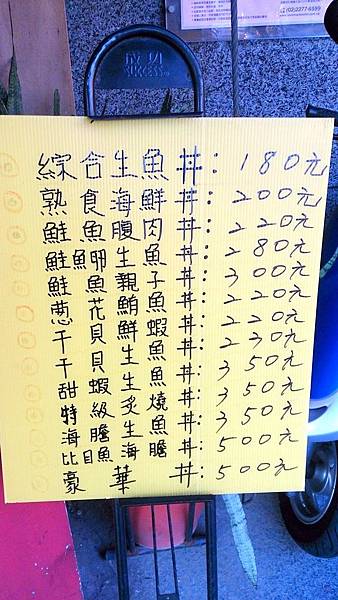 成功
SUCCESS
(02)2377-6599
綜合生魚丼:180元
熟食海鮮丼:200元
鮭魚腹肉丼:220元
鮭魚卵生魚丼:280元
鮭魚親子丼:300元
蔥花鮪魚丼:220元
干貝鮮蝦丼:220元
干貝生魚丼:230元
甜蝦生魚丼:350元
特級炙燒丼:350元
海膽生魚丼:350元
比目魚海膽丼:500元
豪華丼:500元